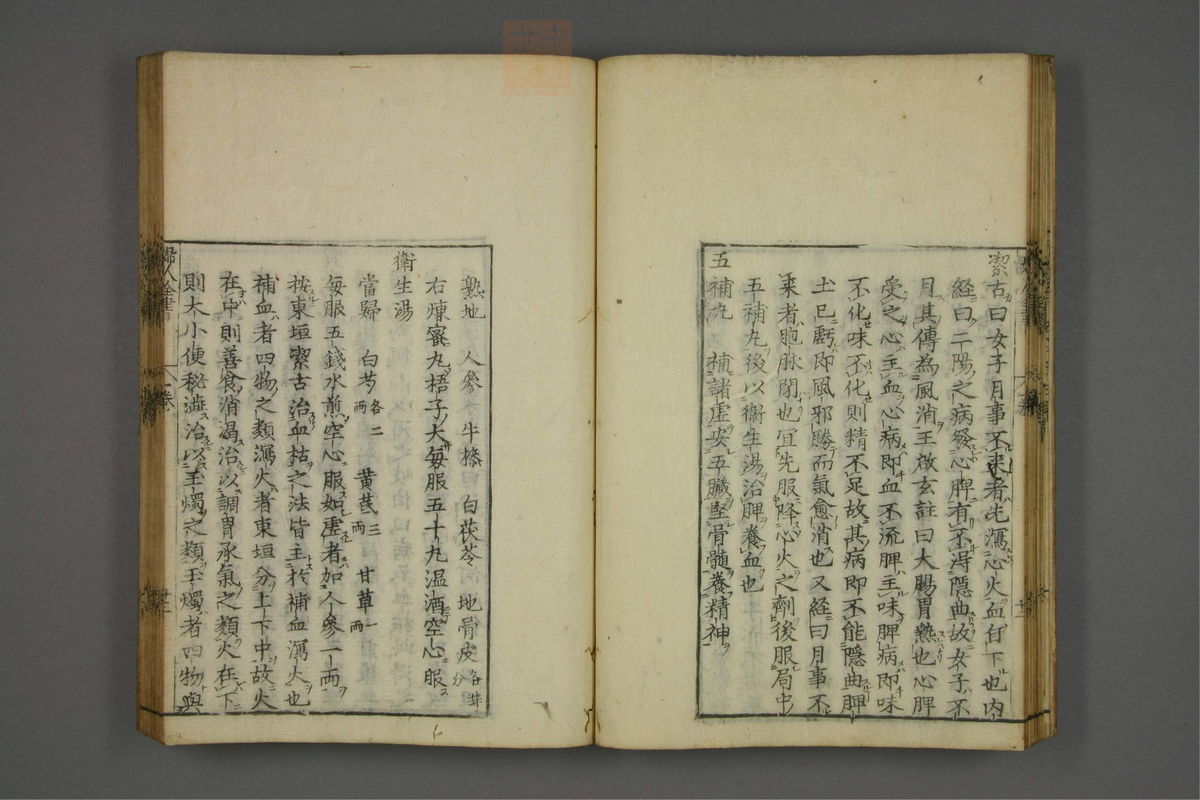 潔古曰女子月事不來者先瀉心火血自下也内
経曰二陽之病發心脾有不淂隠曲故女子不
月其傳為風消王啟玄註曰大腸胃熱也心脾
受之心主血心病即血不流脾主味脾病即味
不化味不化則精不足故其病即不能隠曲脾
土已虧即風邪勝而氣愈消也又経曰月事不
来者胞脉閉也宜先服降心火之劑後服局中
五補丸後以衛生湯治脾養血也
五補丸 補諸虚安五臓堅骨髄養精神
熟地 人參 牛膝 白茯苓 地骨皮 各等分
右煉蜜丸梧子大每服五十丸温酒空心服
衛生湯
當歸 白芍 各二兩 黄芪 三兩 甘草 一兩
每服五錢水煎空心服如虚者如人參一兩
按東垣潔古治血枯之法皆主於補血瀉火也
補血者四物之類瀉火者東垣分上下中故火
在中則善食消渇治以調胃承氣之類火在下
則大小便秘澁治以玉燭之類玉燭者四物與